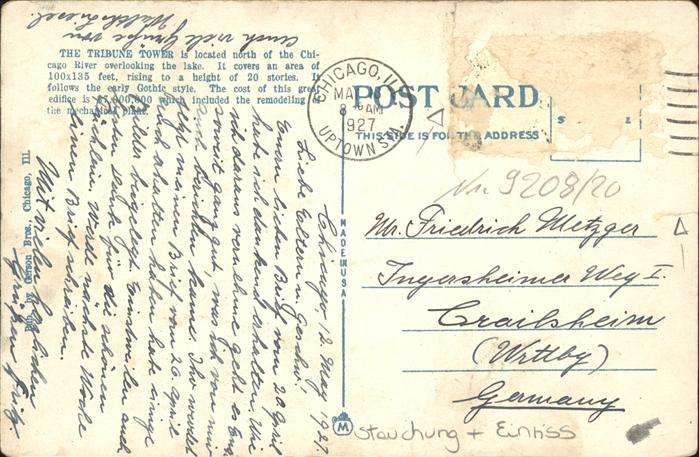 Auch viele Grüße von
THE TRIBUNE TOWER is located north of the Chi-
cago River overlooking the lake. It covers an area of
100x135 feet, rising to a height of 20 stories. It
follows the early Gothic style. The cost of this great
edifice is $7,000,000 which included the remodeling of
the mechanical plant.
Pub. by Gerson Bros. Chicago, Ill.
CHICAGO, ILL.
MAY
8 AM
1927
UPTOWN STA.
POST CARD
THIS SIDE IS FOR THE ADDRESS
MADE IN USA
No 9208/20
Mr. Friedrich Metzger
Ingersheimer Weg I.
Crailsheim
(Wrttbg)
Germany
Stauchung + Einriss
Chicago, 12. May 1927.
Liebe Eltern u. Geschw.!
Euren lieben Brief vom 20 April
heute sich dankend erhalten. Wie
ich daraus vernehme geht es Euch
soweit ganz gut, was ich von mir
auch berichten kann. Ihr werdet
meinen Brief vom 26 April
auch erhalten haben habe einige
Bilder beigelegt. Einstweilen auch
besten Dank für die schönen
Werde nächste Woche
einen Brief schreiben.
Mit vielen herzlichen
Grüßen Fritz.